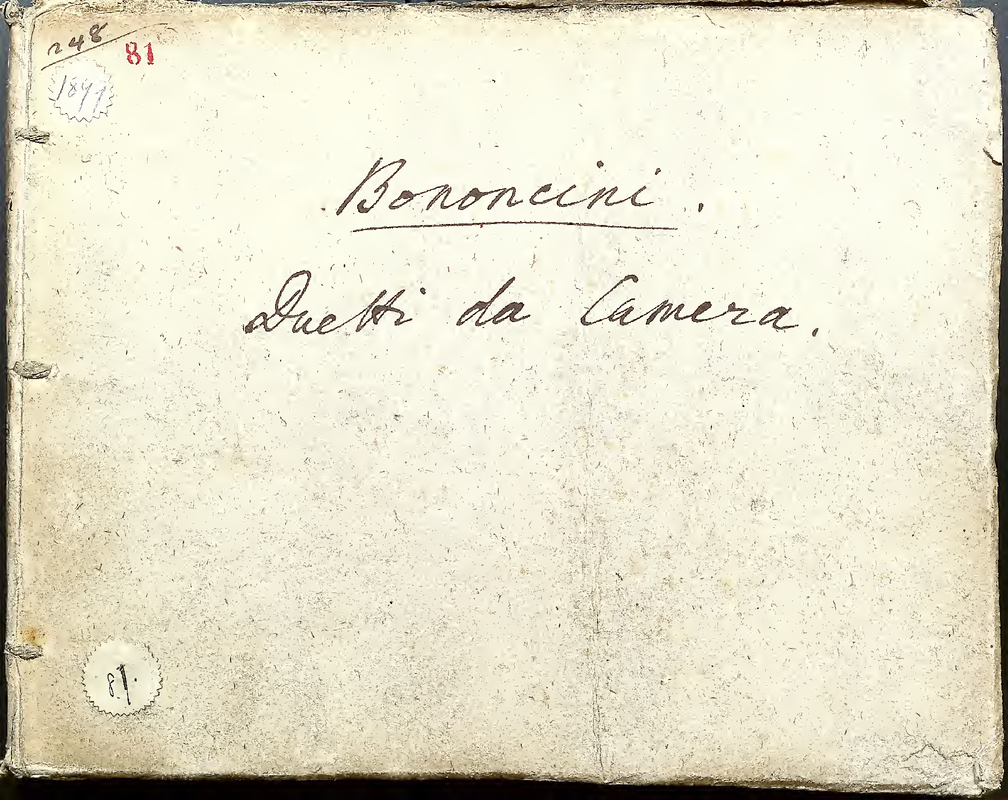 248
81
1899
Bononcini.
Duetti da Camera.
81.